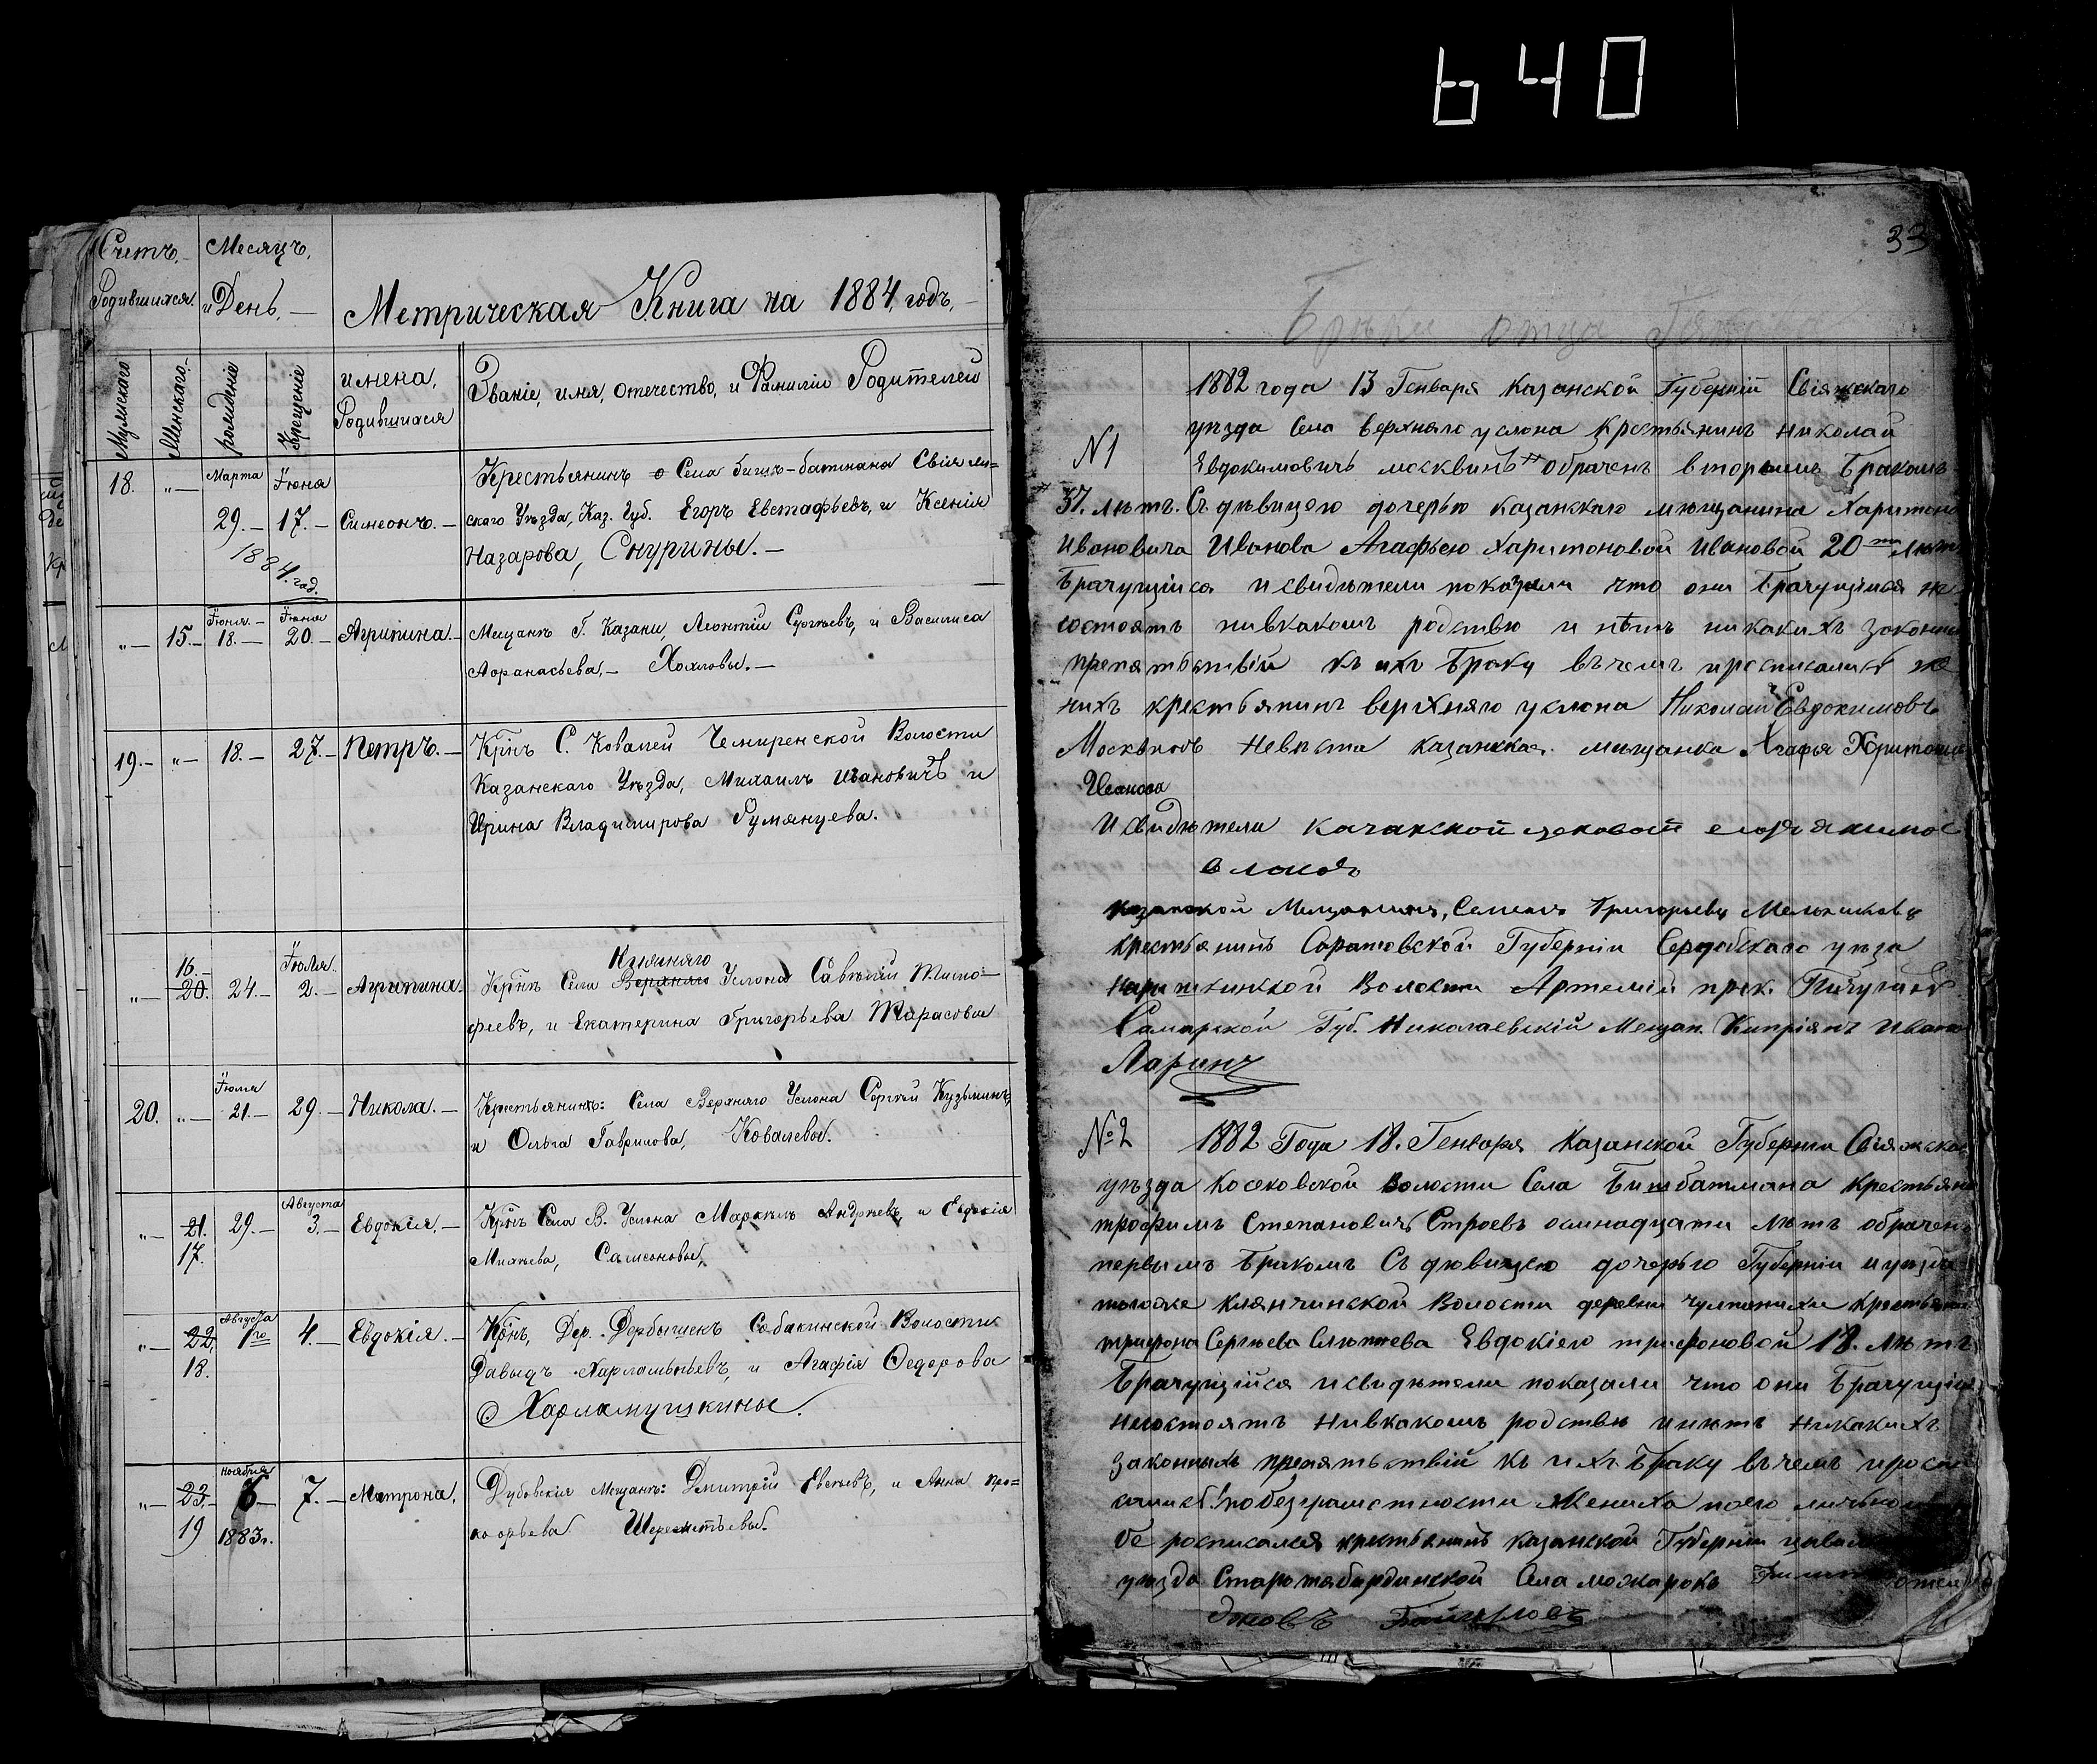 640
Счетъ.
Родившихся.
Месяцъ,
и День,
Метрическая Книга на 1884, годъ,
Мужскаго
Женскаго.
рожденіе
Крещеніе
имена,
Родившихся
Званіе, имя, отечество, и Фамиліи Родителей
18. „— Марта Іюня
29.— 17.— Симеонъ.—
1884. год.
Крестьянинъ Села Бишъ-батмана Свіяж=
скаго Уѣзда, Каз. Губ. Егоръ Евстафьевъ, и Ксенія
Назарова, Снурины.—
„— 15.— Іюня.— 18.— Іюня 20.— Агрипина.—
Мещанъ Г. Казани, Леонтій Сергѣевъ, и Василиса
Афанасьева,— Хохловы.—
19.— „— 18.— 27.— Петръ.—
Крнъ С. Ковалей Чемиренской Волости
Казанскаго Уѣзда, Михаилъ Ивановичъ и
Ирина Владимирова Румянцева.
„— 16.— 20. 24.— Іюля. 2.— Агрипина.
Книяняго
Крнъ Села Верхняго Услона Савѣлій Тимо=
феевъ, и Екатерина Григорьева Тарасовы
20. „— Іюля 21.— 29.— Никола.—
Крестьянинъ: Села Верхняго Услона Сергѣй Кузьминъ,
и Ольга Гаврилова, Ковалевы.
„— 21. 17. 29.— Августа 3.— Евдокія.—
Крнъ Села В. Услона Андреевъ, и Евдокія
Михѣева, Самсоновы,
„— 22. 18. Августа 1го 4.— Евдокія.—
Крнъ, Дер. Дербышекъ Собакинской Волости
Давыдъ Харлампьевъ, и Агафія Федорова
Харламушкины.
„— 23.— 19 Ноября 6— 1883г. 7.— Матрона.
Дубовскія Мещанъ: Дмитрій Евсѣевъ, и Анна Про=
кофьева Шереметьевы.
33
Браки отца
1882 года 13 Генваря Казанской Губерній Свіяжскаго
уѣзда Села верхняго услона Крестьянинъ Николай
№1 Евдокимовичъ москвинъ обраченъ вторымъ Бракомъ
37. лѣтъ. Съ дѣвицею дочерью казанскаго мѣщанина Харитона
Ивановича Иванова Агафьею Харитоновой Ивановой 20ти лѣтъ
Брачущіися и свидѣтели показали что они Брачущіися не
состоятъ нивкакомъ родствѣ и нѣтъ никакихъ законн
препятьствій къ ихъ Браку въ чемъ
нихъ крестьянинъ верхняго услона Николай Евдокимовъ
Москвинъ Невѣста казанская мищанка Агафья Харитоно
Иванова
И свидѣтели
казанской Мещанинъ, Семенъ Григорьевъ Мельниковъ
крестьянинъ Саратовской Губерніи Сердобскаго уѣза
Волости Артемій
Самарской Губ. Николаевскій Мещан. Кипріянъ Ивано
Ларинъ
№2 1882 Года 18. Генваря Казанской Губерніи Свіяжска
уѣзда Косяковской Волости Села Бишбатмана Крестьян
трофимъ Степановичъ Строевъ осмнадцати лѣтъ обрачен
первымъ Бракомъ Съ дѣвицею дочерью Губерніи и уѣзда
толоже клянчинской Волости деревни Крестьян
трифона Сергѣева Евдокіею трифоновой 18. лѣтъ
Брачущійся и свидѣтели показали что они Брачущія
несостоятъ нивкакомъ родствѣ инѣтъ никакихъ
законныхъ препятьствій къ ихъ Браку въ чемъ
по безграмотности Жениха поего личьно
бе росписался крестьянинъ Казанской Губерніи
уѣзда Села можарокъ